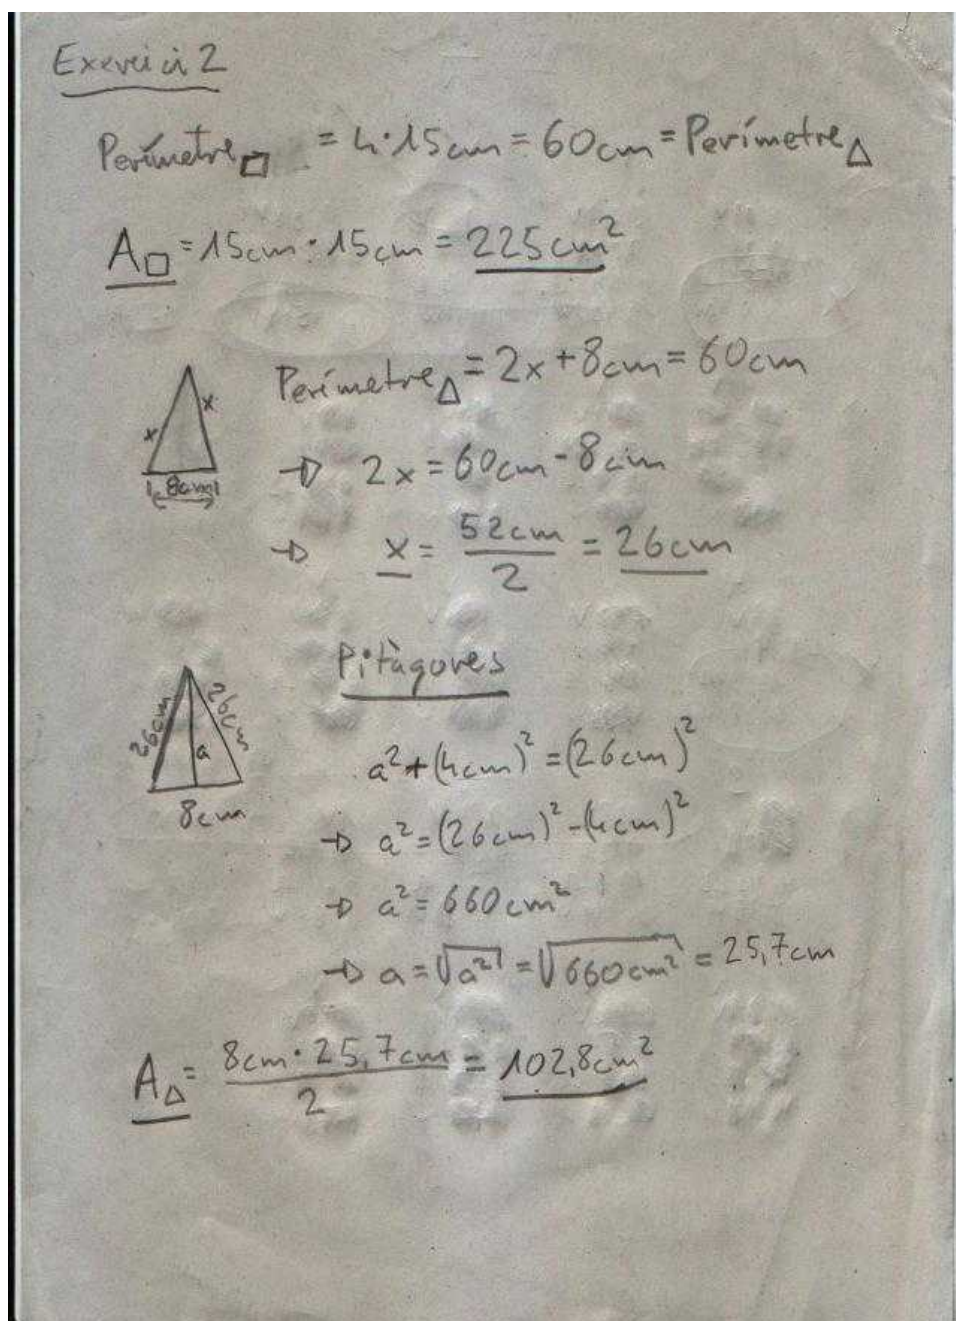 Exercici 2
Perímetre□ = 4·15cm = 60cm = Perímetre△
A□ = 15cm · 15cm = 225cm²
Perímetre△ = 2x + 8cm = 60cm
x
x
8cm
→ 2x = 60cm - 8cm
→ x = 52cm/2 = 26cm
Pitàgores
26cm
26cm
a
8cm
a² + (4cm)² = (26cm)²
→ a² = (26cm)² - (4cm)²
→ a² = 660cm²
→ a = √a² = √660cm² = 25,7cm
A△ = 8cm · 25,7cm / 2 = 102,8cm²